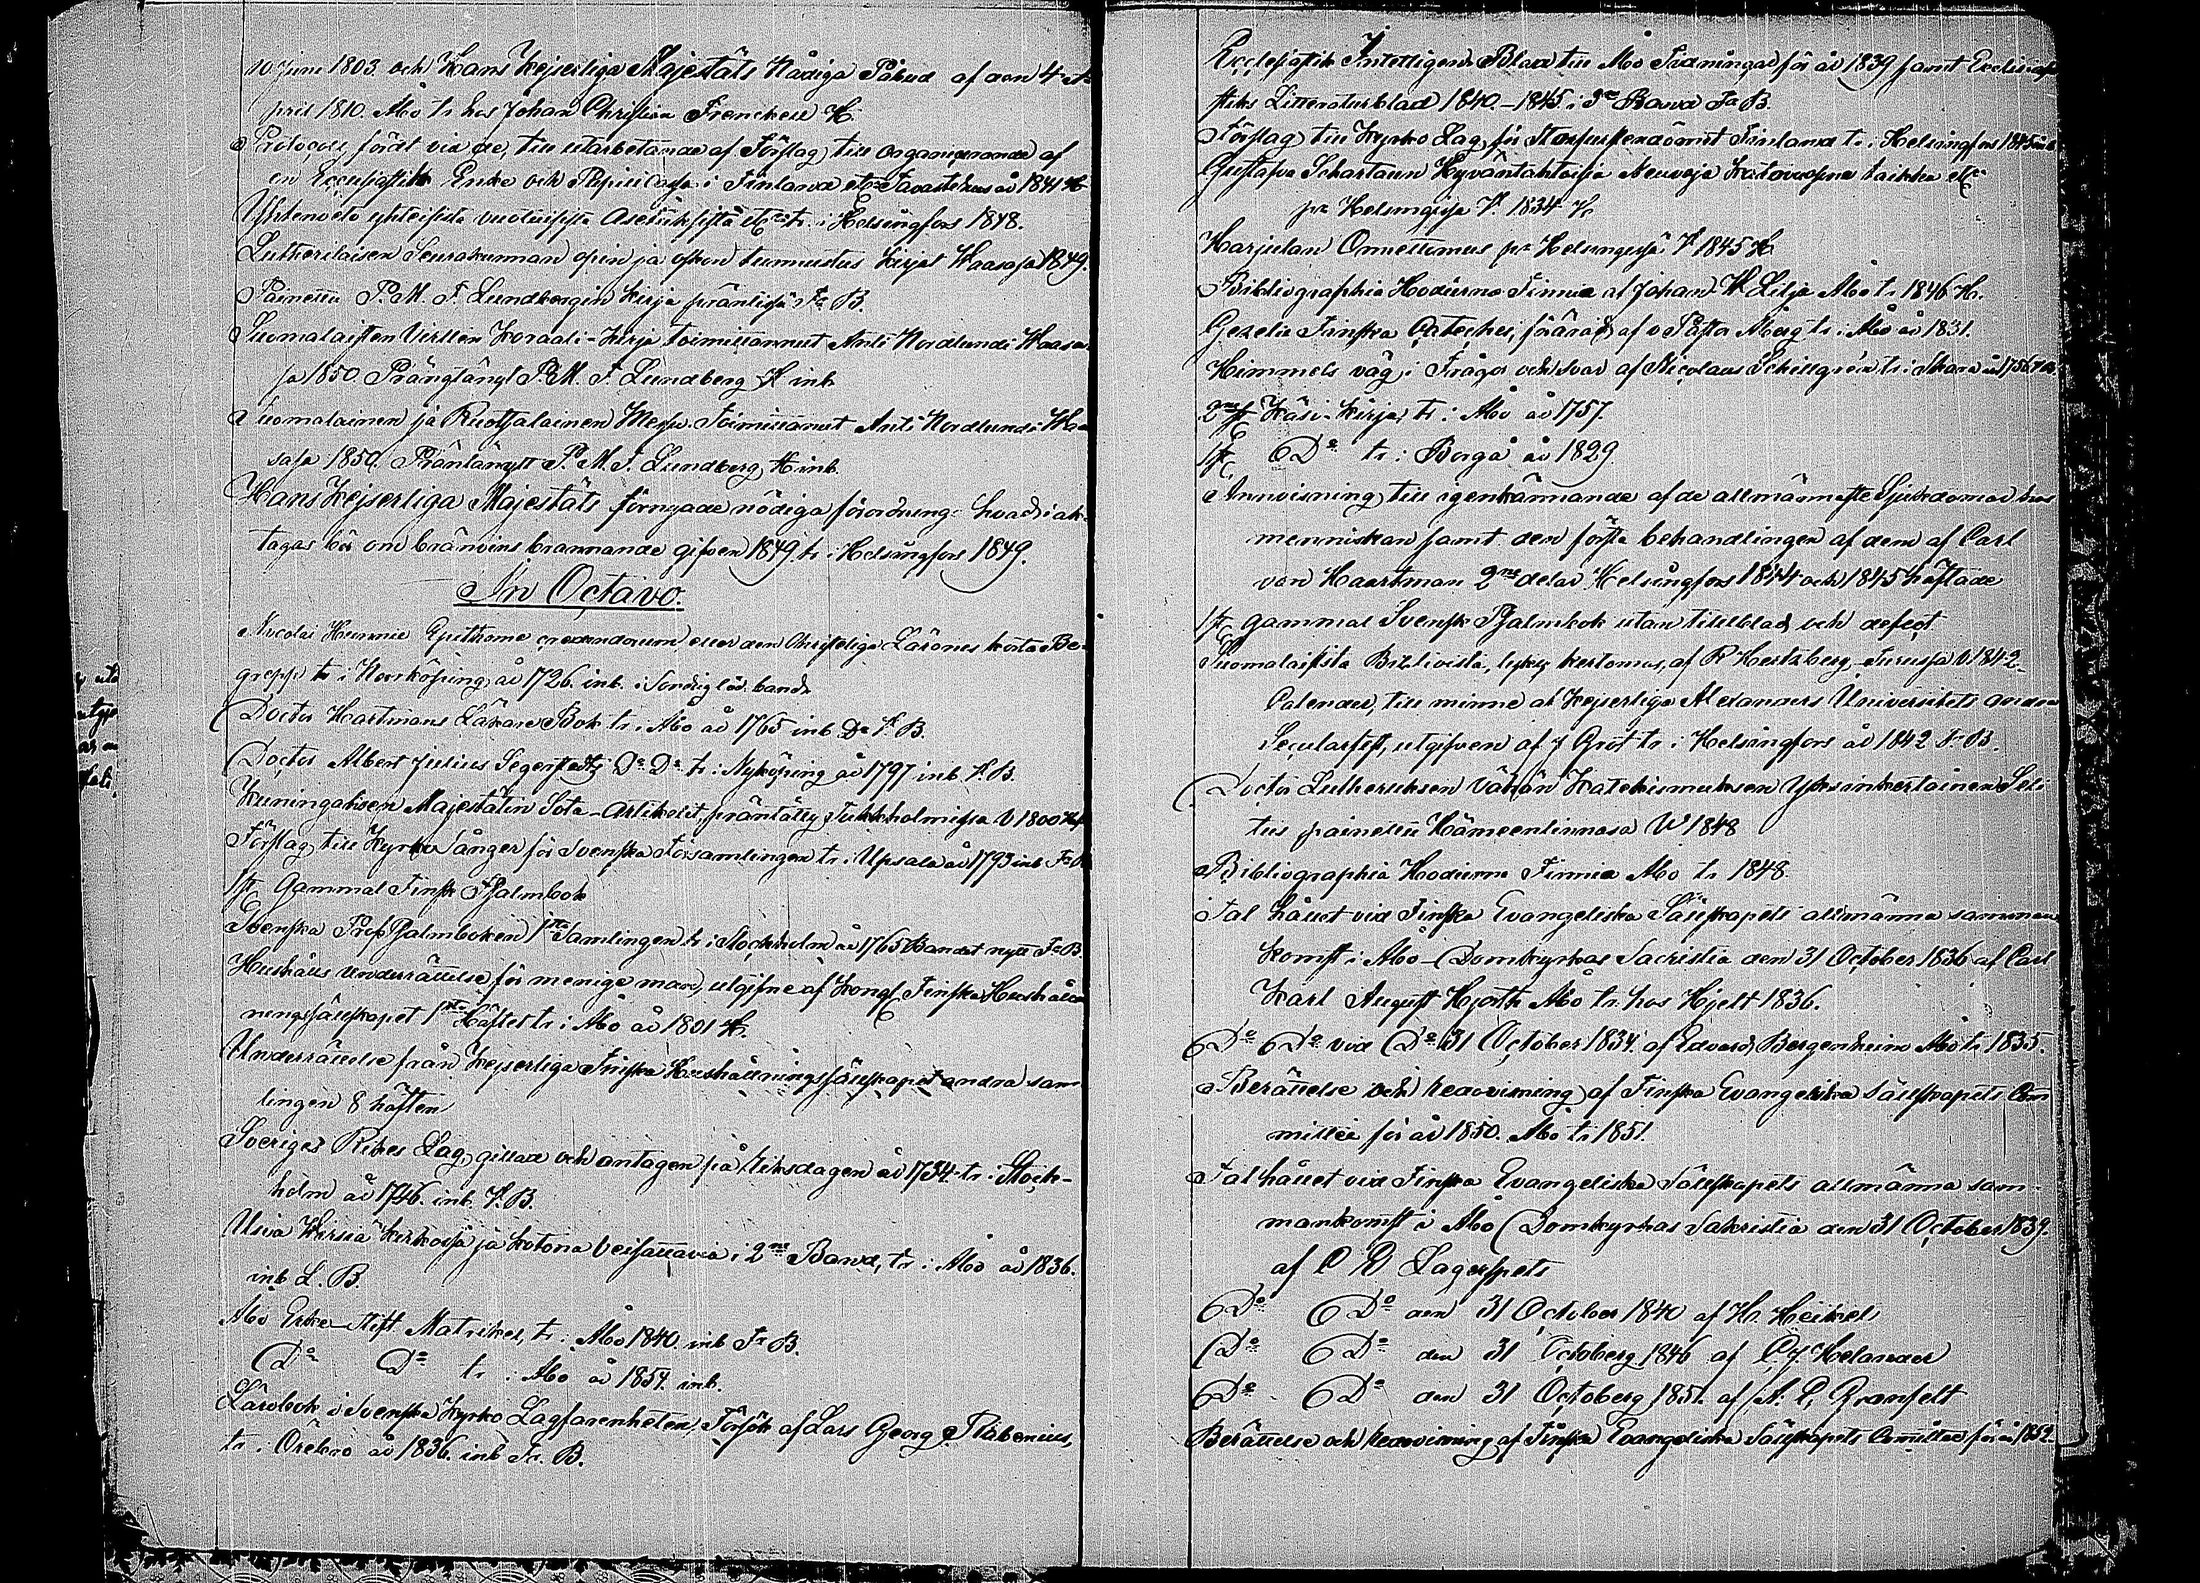 10 Junii 1803. och Hans Kejserliga Majestäts Nådiga Påbud af den 4 A-
pril 1810. Åbo tr. hos Johan Christian Frenckell H.
Protocoll, fördt vid de, till utarbetande af Förslag till organiserande af
en Ecclesiastik Enke och Pupill Cassa i Finland etc Tavastehus år 1841 H.
Yhtenveto yhteisistä Asetuksista etc tr. i Helsingfors 1848.
Lutherilaisen Seurakunnan opin ja uskon tunnustus kirjat Waasasa 1849.
Painettu P. M. F. Lundbergin kirja präntissä Fr B.
Suomalaisten Virtten Koraali-Kirja toimittannut Anti Nordlundi Waasa-
sa 1850. Präntänyt P. M. F. Lundberg H inb
Suomalainen ja Ruotsalainen Messu. Toimittannut Anti Nordlundi Waa
sasa 1850. Präntännyt P. M. F. Lundberg H inb.
Hans Kejserliga Majestäts förnyade nådiga förordning: hvad i akt
tagas bör om bränvins brännande gifven 1849. tr. i Helsingfors 1849.
In Octavo.
Nicolai Hunnii Epithome credendorum eller den Christeliga Lärones korta Be-
grepp tr. i Norrköping år 1726. inb. i Söndrig läd. band.
Doctor Hartmans Läkare Bok tr. i Åbo år 1765 inb. Do F. B.
Doctor Albert Julius Segerstedts Do Do tr. i Nyköping år 1797 inb F. B.
Kuningalisen Majestätin Sota-Artikelit, präntätty Tukhholmissa V 1800
Förslag till Kyrko Sånger för Svenska Församlingen tr. i Upsala år 1793 inb Fr B
1 st Gammal Finsk Psalmbok
Svenska Prof Psalmboken 1sta Samlingen tr. i Stockholm år 1765 Bandet nytt Fr B.
Hushålls Underrättelse för menige man, utgifne af Kongl. Finska Hushåll
ningssällskapet 1sta Häftet tr. i Åbo år 1801 H.
Underrättelse från Kejserliga Finska Hushållningssällskapet andra sam
lingen 8 häften
Sveriges Rikes Lag, gillad och antagen på Riksdagen år 1734. tr. i Stock-
holm år 1746. inb. F. B.
Usia Wirsiä Kirkossa ja kotona Veisattavia i 2ne Band, tr. i Åbo år 1836.
inb L. B.
Åbo Erke-Stift Matrikel, tr. Åbo 1840. inb Fr B.
Do Do tr. i Åbo år 1854. inb.
Lärobok i Svenska Kyrko Lagfarenheten, Försök af Lars Georg Rabenius,
tr. i Örebro år 1836. inb Fr. B.
7
Ecclesiastik Intelligens Blad till Åbo Tidningar för år 1839 samt Ecclesia
stiks Litteraturblad 1840.-1845 i 3ne Band Fr B.
Förslag till Kyrko Lag, för Storfurstendömet Finland tr. i Helsingfors 1845
Gustava Schartaun Hyväntahtoisia Neuvoja taikka etc
pr Helsingissä V. 1834 H.
Harjulan Onnettomus pr Helsingissä V 1845 H.
Bibliographia Hodierna Finniæ af Johan W Lilja Åbo tr. 1846 H.
Gezelii Finska Cateches, förärad af v Pastor Åberg tr. i Åbo år 1831.
Himmels väg i Frågor och Svar af Nicolaus Schillgren tr. i Skara år 1756.
2ne st Käsi-Kirja tr. i Åbo år 1757.
1 st Do tr. i Borgå år 1829.
Anvisning, till igenkännande af de allmännaste Sjukdomar hos
menniskan samt den första behandlingen af dem af Carl
von Haartman 2ne delar Helsingfors 1844 och 1845 häftade
1 st gammal Svensk Psalmbok utan titelblad och defect
Suomalaisista Biblivistä, lyhy kertomus, af R Hertzberg, Turussa V 1842.
Calender, till minne af Kejserliga Alexanders Universitets andra
Secularfest, utgifven af J Grot tr. i Helsingfors år 1842 F. B.
Doctor Lutheruksen Vähän Katekismuksen Yksinkertainen Seli
tus painettu Hämeenlinnasa V 1848
Bibliographia Hodierna Finniæ Åbo tr 1848.
Tal hållet vid Finska Evangeliska Sällskapets allmänna samman
komst i Åbo Domkyrkas Sacristia den 31 October 1836 af Carl
Karl August Hjorth Åbo tr. hos Hjelt 1836.
Do Do vid Do 31 October 1834. af Edvard Bergenheim Åbo tr. 1835.
Berättelse och redovisning af Finska Evangeliska Sällskapets Com
mittée för år 1850. Åbo tr 1851.
Tal hållet vid Finska Evangeliska Sällskapets allmänna sam-
mankomst i Åbo Domkyrkas Sakristia den 31 October 1839.
af C D Lagerspets
Do Do den 31 October 1840 af H. Heikel
Do Do den 31 October 1846 af C. J. Helander
Do Do den 31 October 1851. af A. P. Granfelt
Berättelse och redovisning af Finska Evangeliska Sällskapets Comittée för år 1852.